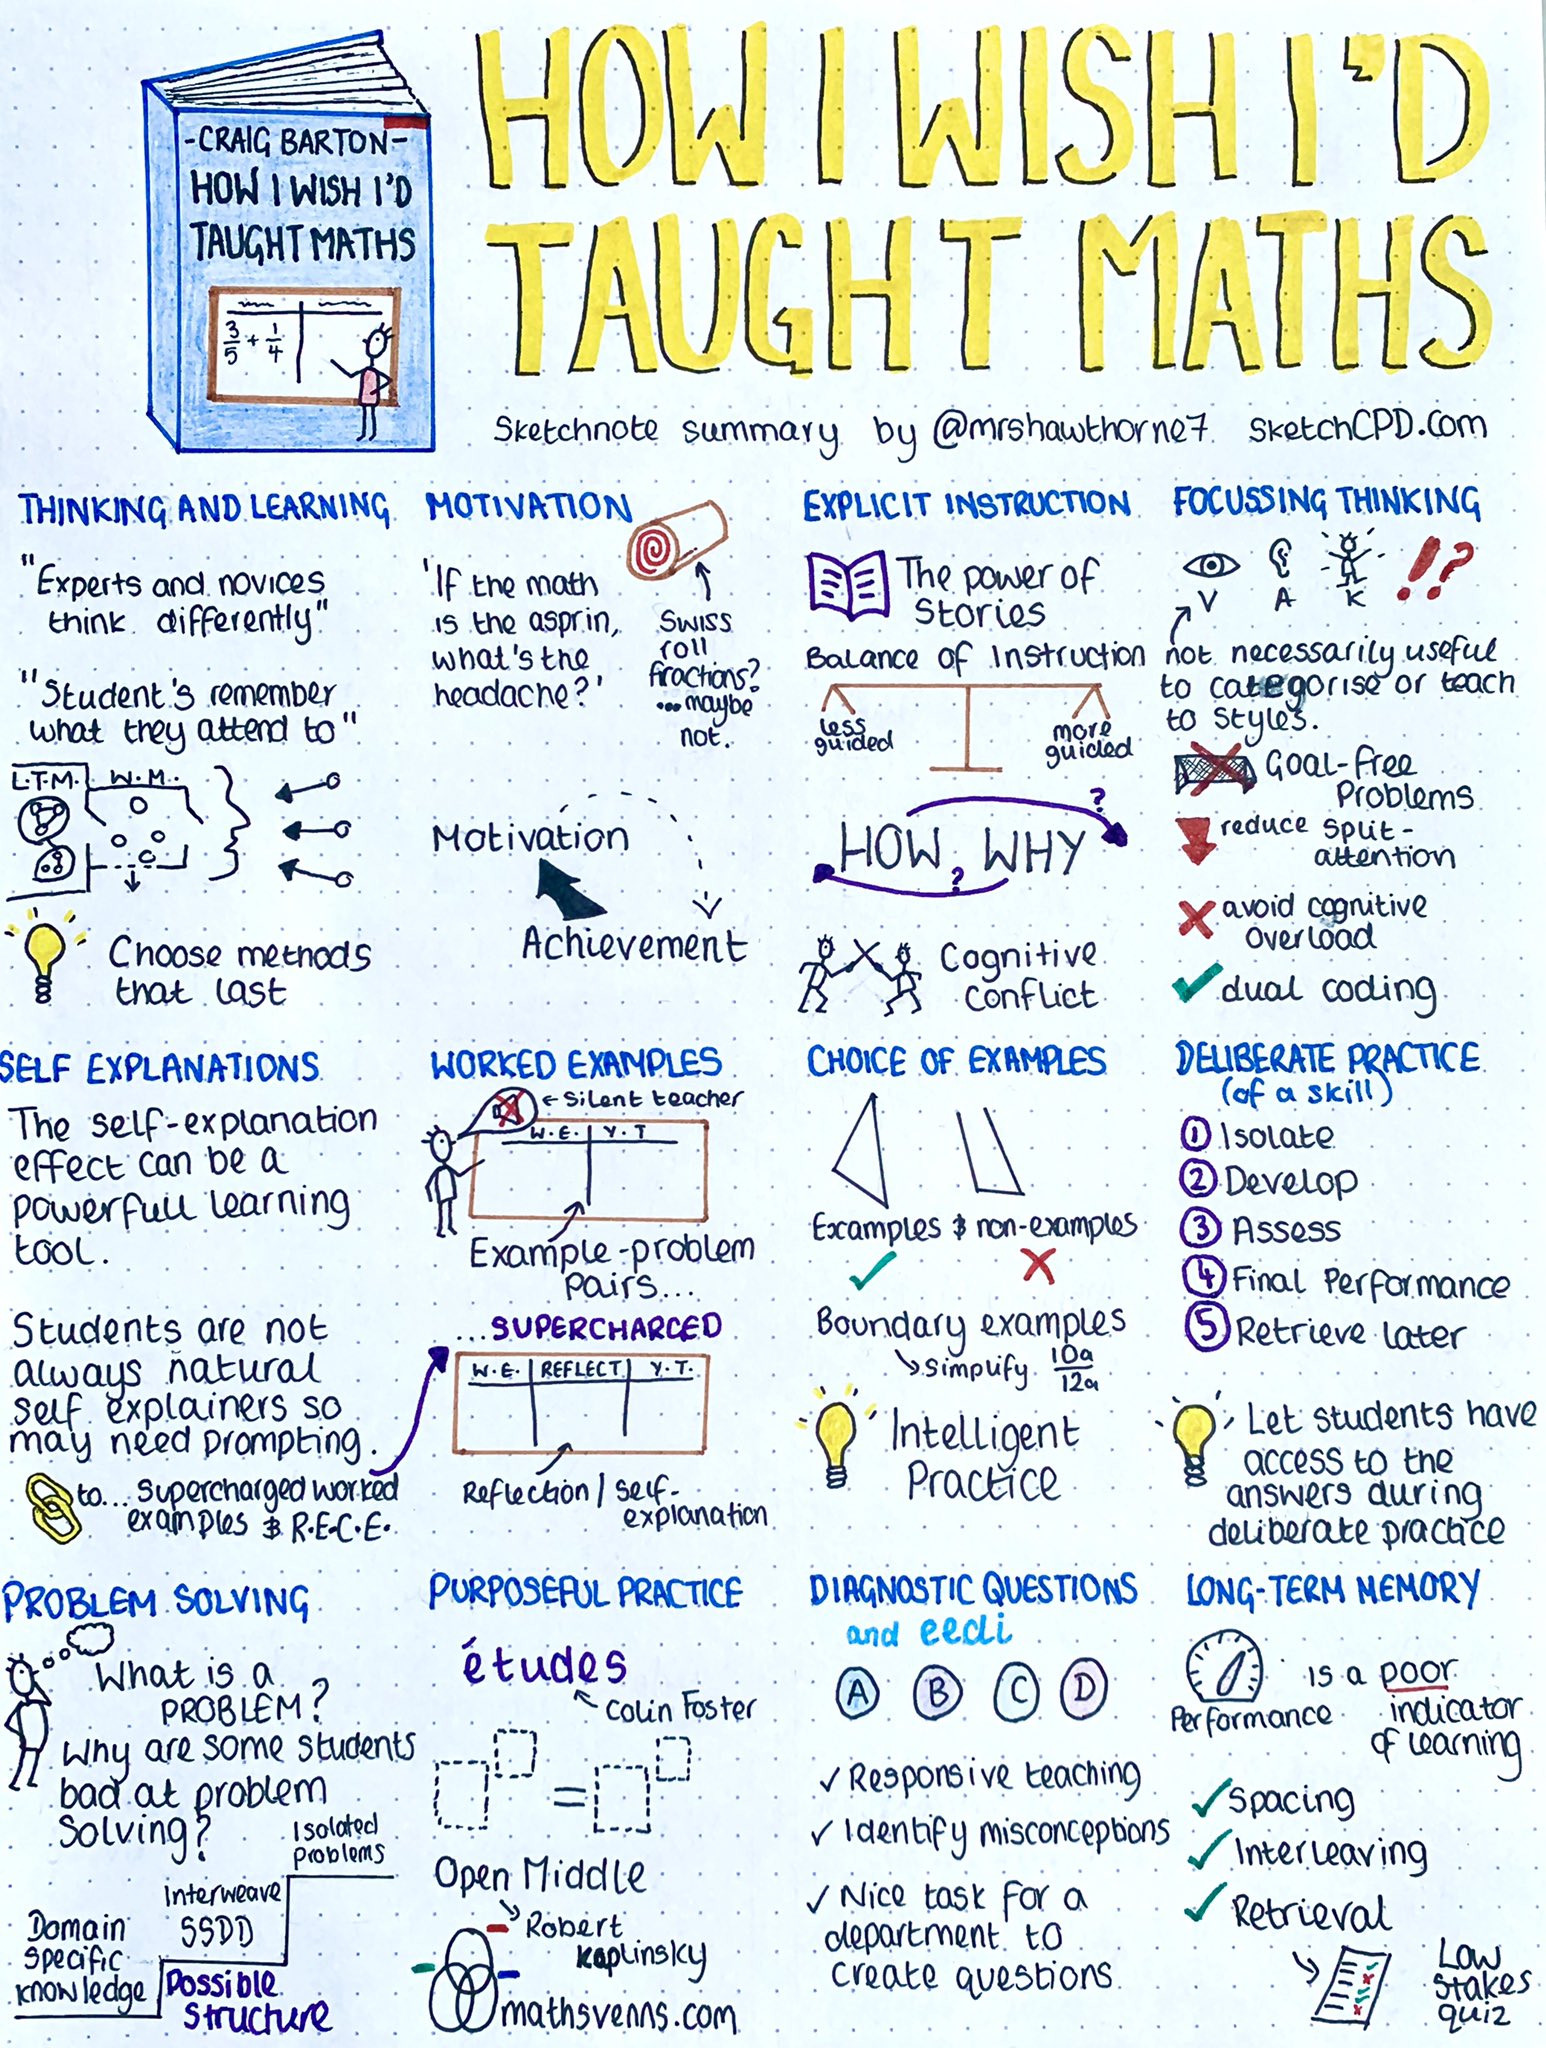 -CRAIG BARTON-
HOW I WISH I'D
TAUGHT MATHS
3/5 + 1/4
HOW I WISH I'D
TAUGHT MATHS
Sketchnote summary by @mrshawthorne7 SketchCPD.com
THINKING AND LEARNING
"Experts and novices
think differently"
"Student's remember
what they attend to"
L.T.M. W.M.
Choose methods
that last
MOTIVATION
'If the math
is the asprin,
what's the
headache?'
Swiss
roll
fractions?
...maybe
not.
Motivation
Achievement
EXPLICIT INSTRUCTION
The power of
Stories
Balance of Instruction
less
guided
more
guided
?
HOW WHY
?
Cognitive
Conflict
FOCUSSING THINKING
!?
V A K
not necessarily useful
to categorise or teach
to styles.
Goal-free
Problems
reduce split-
attention
avoid cognitive
overload
dual coding
SELF EXPLANATIONS
The self-explanation
effect can be a
powerfull learning
tool.
Students are not
always natural
self explainers so
may need prompting.
to... supercharged worked
examples & R.E.C.E.
WORKED EXAMPLES
← Silent teacher
W.E. Y.T
Example-problem
Pairs...
...SUPERCHARGED
W.E. REFLECT Y.T.
Reflection / self-
explanation
CHOICE OF EXAMPLES
Examples & non-examples
Boundary examples
↳ Simplify 10a/12a
Intelligent
Practice
DELIBERATE PRACTICE
(of a skill)
1 Isolate
2 Develop
3 Assess
4 Final Performance
5 Retrieve later
Let students have
access to the
answers during
deliberate practice
PROBLEM SOLVING
What is a
PROBLEM?
Why are some students
bad at problem
Solving?
Isolated
problems
Interweave
SSDD
Domain
specific
knowledge
Possible
structure
PURPOSEFUL PRACTICE
études
Colin Foster
=
Open Middle
Robert
Kaplinsky
mathsvenns.com
DIAGNOSTIC QUESTIONS
and eedi
A B C D
✓ Responsive teaching
✓ Identify misconceptions
✓ Nice task for a
department to
create questions
LONG-TERM MEMORY
is a poor
Performance indicator
of learning
✓ Spacing
✓ Interleaving
✓ Retrieval
Low
stakes
quiz